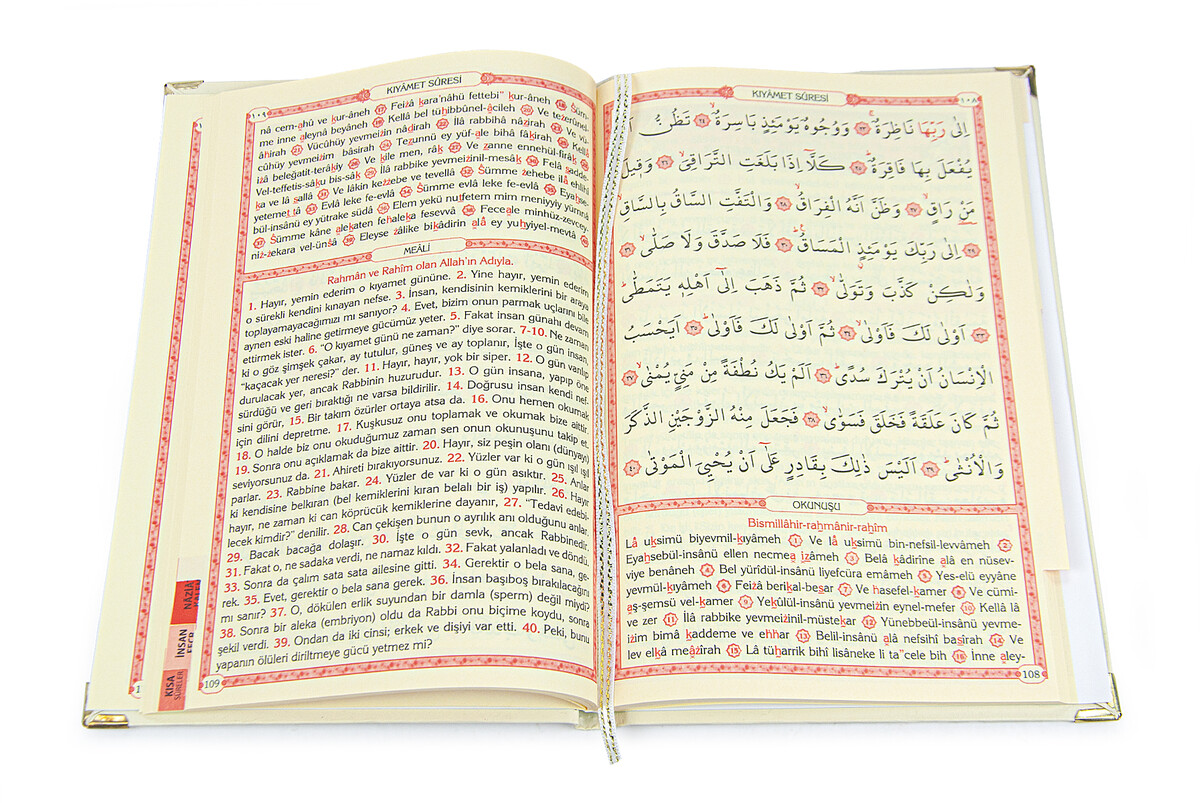 KIYÂMET SÛRESİ
١٠٨
اِلٰى رَبِّهَا نَاظِرَةٌۚ ﴿٢٣﴾ وَوُجُوهٌ يَوْمَئِذٍ بَاسِرَةٌۙ ﴿٢٤﴾ تَظُنُّ اَ
يُفْعَلَ بِهَا فَاقِرَةٌۜ ﴿٢٥﴾ كَلَّٓا اِذَا بَلَغَتِ التَّرَاقِيَۙ ﴿٢٦﴾ وَق۪يلَ
مَنْ رَاقٍۙ ﴿٢٧﴾ وَظَنَّ اَنَّهُ الْفِرَاقُۙ ﴿٢٨﴾ وَالْتَفَّتِ السَّاقُ بِالسَّاقِۙ
﴿٢٩﴾ اِلٰى رَبِّكَ يَوْمَئِذٍ الْمَسَاقُۜ ﴿٣٠﴾ فَلَا صَدَّقَ وَلَا صَلّٰىۙ ﴿٣١﴾
وَلٰكِنْ كَذَّبَ وَتَوَلّٰىۙ ﴿٣٢﴾ ثُمَّ ذَهَبَ اِلٰٓى اَهْلِه۪ يَتَمَطّٰىۜ
﴿٣٣﴾ اَوْلٰى لَكَ فَاَوْلٰىۙ ﴿٣٤﴾ ثُمَّ اَوْلٰى لَكَ فَاَوْلٰىۜ ﴿٣٥﴾ اَيَحْسَبُ
الْاِنْسَانُ اَنْ يُتْرَكَ سُدًىۜ ﴿٣٦﴾ اَلَمْ يَكُ نُطْفَةً مِنْ مَنِيٍّ يُمْنٰىۙ ﴿٣٧﴾
ثُمَّ كَانَ عَلَقَةً فَخَلَقَ فَسَوّٰىۙ ﴿٣٨﴾ فَجَعَلَ مِنْهُ الزَّوْجَيْنِ الذَّكَرَ
وَالْاُنْثٰىۜ ﴿٣٩﴾ اَلَيْسَ ذٰلِكَ بِقَادِرٍ عَلٰٓى اَنْ يُحْيِيَ الْمَوْتٰى ﴿٤٠﴾
OKUNUŞU
Bismillâhir-rahmânir-rahîm
Lâ uksimü biyevmil-kıyâmeh 1 Ve lâ uksimü bin-nefsil-levvâmeh 2
Eyahsebül-insânü ellen necmea izâmeh 3 Belâ kâdirîne alâ en nüsev-
viye benâneh 4 Bel yürîdül-insânü liyefcüra emâmeh 5 Yes-elü eyyâne
yevmül-kıyâmeh 6 Feizâ berikal-besar 7 Ve hasefel-kamer 8 Ve cümi-
aş-şemsü vel-kamer 9 Yekûlül-insânü yevmeizin eynel-mefer 10 Kellâ lâ
ve zer 11 İlâ rabbike yevmeizinil-müstekar 12 Yünebbeül-insânü yevme-
izim bimâ kaddeme ve ehhar 13 Belil-insânü alâ nefsihî basîrah 14 Ve
lev elkâ meâzîrah 15 Lâ tüharrik bihî lisâneke li ta"cele bih 16 İnne aley-
108
KIYÂMET SÛRESİ
١٠٩
nâ cem-ahû ve kur-âneh 17 Feizâ kara'nâhü fettebi" kur-âneh 18 Süm-
me inne aleynâ beyâneh 19 Kellâ bel tühibbûnel-âcileh 20 Ve tezerûnel-
âhirah 21 Vücûhüy yevmeizin nâdirah 22 İlâ rabbihâ nâzirah 23 Ve vü-
cûhüy yevmeizim bâsirah 24 Tezunnü ey yüf-ale bihâ fâkirah 25 Kellâ
izâ beleğatit-terâkıy 26 Ve kîle men, râk 27 Ve zanne ennehül-firâk 28
Vel-teffetis-sâku bis-sâk 29 İlâ rabbike yevmeizinil-mesâk 30 Felâ sadde-
ka ve lâ sallâ 31 Ve lâkin kezzebe ve tevellâ 32 Sümme zehebe ilâ ehlihî
yetemettâ 33 Evlâ leke fe-evlâ 34 Sümme evlâ leke fe-evlâ 35 Eyahse-
bül-insânü ey yütrake südâ 36 Elem yekü nutfetem mim meniyyiy yümnâ
37 Sümme kâne alekaten fehaleka fesevvâ 38 Feceale minhüz-zevcey-
niz-zekara vel-ünsâ 39 Eleyse zâlike bikâdirin alâ ey yuhyiyel-mevtâ 40
MEÂLİ
Rahmân ve Rahîm olan Allah'ın Adıyla.
1. Hayır, yemin ederim o kıyamet gününe. 2. Yine hayır, yemin ederim
o sürekli kendini kınayan nefse. 3. İnsan, kendisinin kemiklerini bir araya
toplayamayacağımızı mı sanıyor? 4. Evet, bizim onun parmak uçlarını bile
aynen eski haline getirmeye gücümüz yeter. 5. Fakat insan günahı devam
ettirmek ister. 6. "O kıyamet günü ne zaman?" diye sorar. 7-10. Ne zaman
ki o göz şimşek çakar, ay tutulur, güneş ve ay toplanır, İşte o gün insan,
"kaçacak yer neresi?" der. 11. Hayır, hayır, yok bir siper. 12. O gün varılıp
durulacak yer, ancak Rabbinin huzurudur. 13. O gün insana, yapıp öne
sürdüğü ve geri bıraktığı ne varsa bildirilir. 14. Doğrusu insan kendi nef-
sini görür, 15. Bir takım özürler ortaya atsa da. 16. Onu hemen okumak
için dilini depretme. 17. Kuşkusuz onu toplamak ve okumak bize aittir.
18. O halde biz onu okuduğumuz zaman sen onun okunuşunu takip et.
19. Sonra onu açıklamak da bize aittir. 20. Hayır, siz peşin olanı (dünyayı)
seviyorsunuz da. 21. Ahireti bırakıyorsunuz. 22. Yüzler var ki o gün ışıl ışıl
parlar. 23. Rabbine bakar. 24. Yüzler de var ki o gün asıktır. 25. Anlar
ki kendisine belkıran (bel kemiklerini kıran belalı bir iş) yapılır. 26. Hayır
hayır, ne zaman ki can köprücük kemiklerine dayanır, 27. "Tedavi edebi-
lecek kimdir?" denilir. 28. Can çekişen bunun o ayrılık anı olduğunu anlar.
29. Bacak bacağa dolaşır. 30. İşte o gün sevk, ancak Rabbinedir.
31. Fakat o, ne sadaka verdi, ne namaz kıldı. 32. Fakat yalanladı ve döndü.
33. Sonra da çalım sata sata ailesine gitti. 34. Gerektir o bela sana, ge-
rek. 35. Evet, gerektir o bela sana gerek. 36. İnsan başıboş bırakılacağını
mı sanır? 37. O, dökülen erlik suyundan bir damla (sperm) değil miydi?
38. Sonra bir aleka (embriyon) oldu da Rabbi onu biçime koydu, sonra
şekil verdi. 39. Ondan da iki cinsi; erkek ve dişiyi var etti. 40. Peki, bunu
yapanın ölüleri diriltmeye gücü yetmez mi?
109
NÂZİÂ
İNSAN
FECR
KISA
SÛRELER